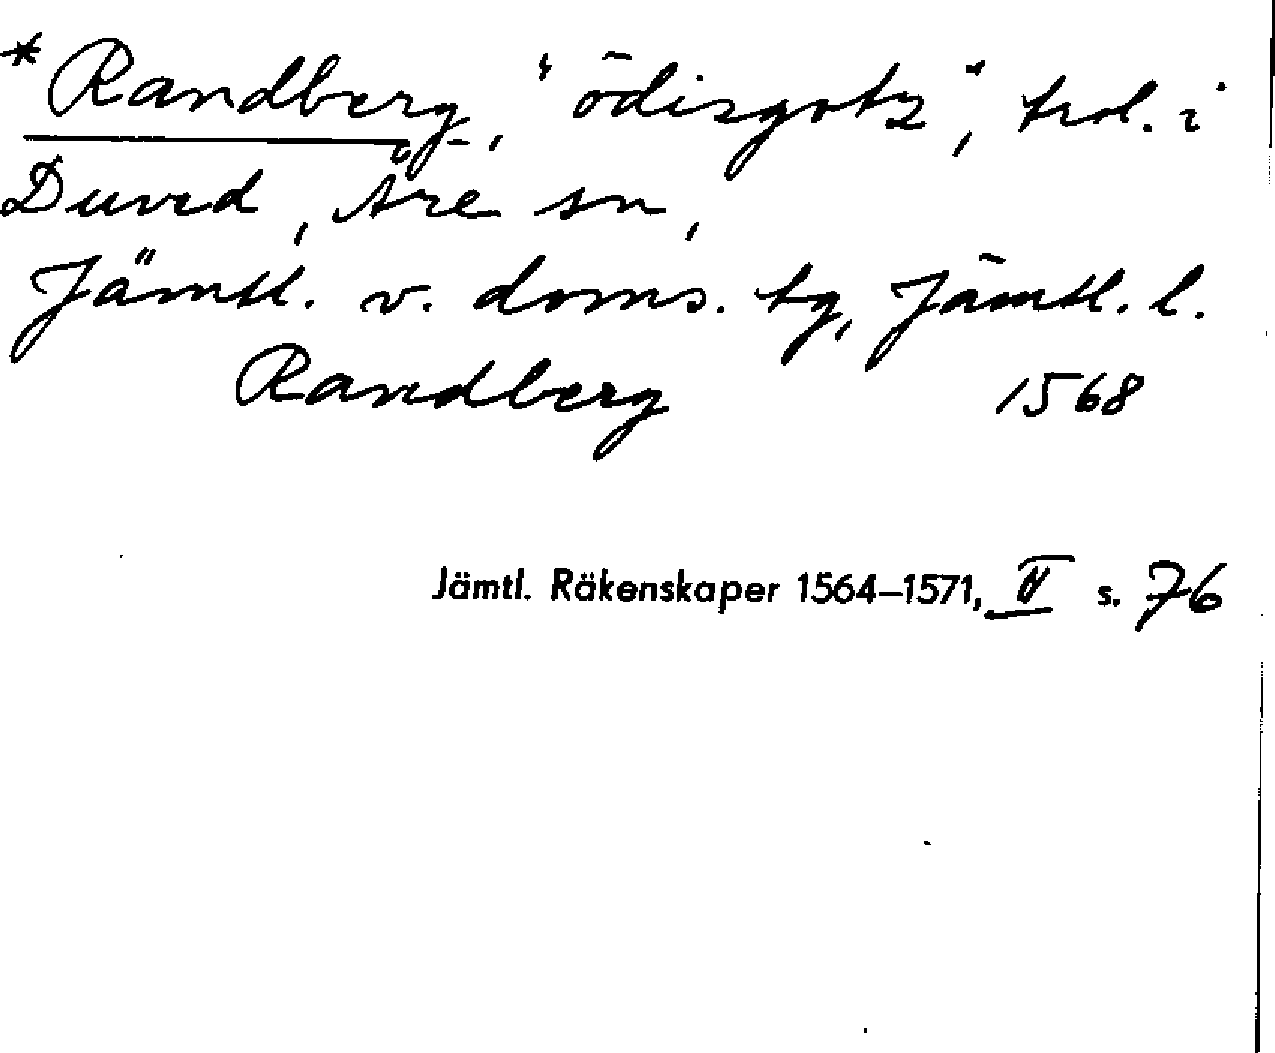 *Randberg, "ödisgotz", trol. i
Duved, Åre sn,
Jämtl. v. doms. tg, Jämtl. l.
Randberg 1568
Jämtl. Räkenskaper 1564–1571, II s. 76